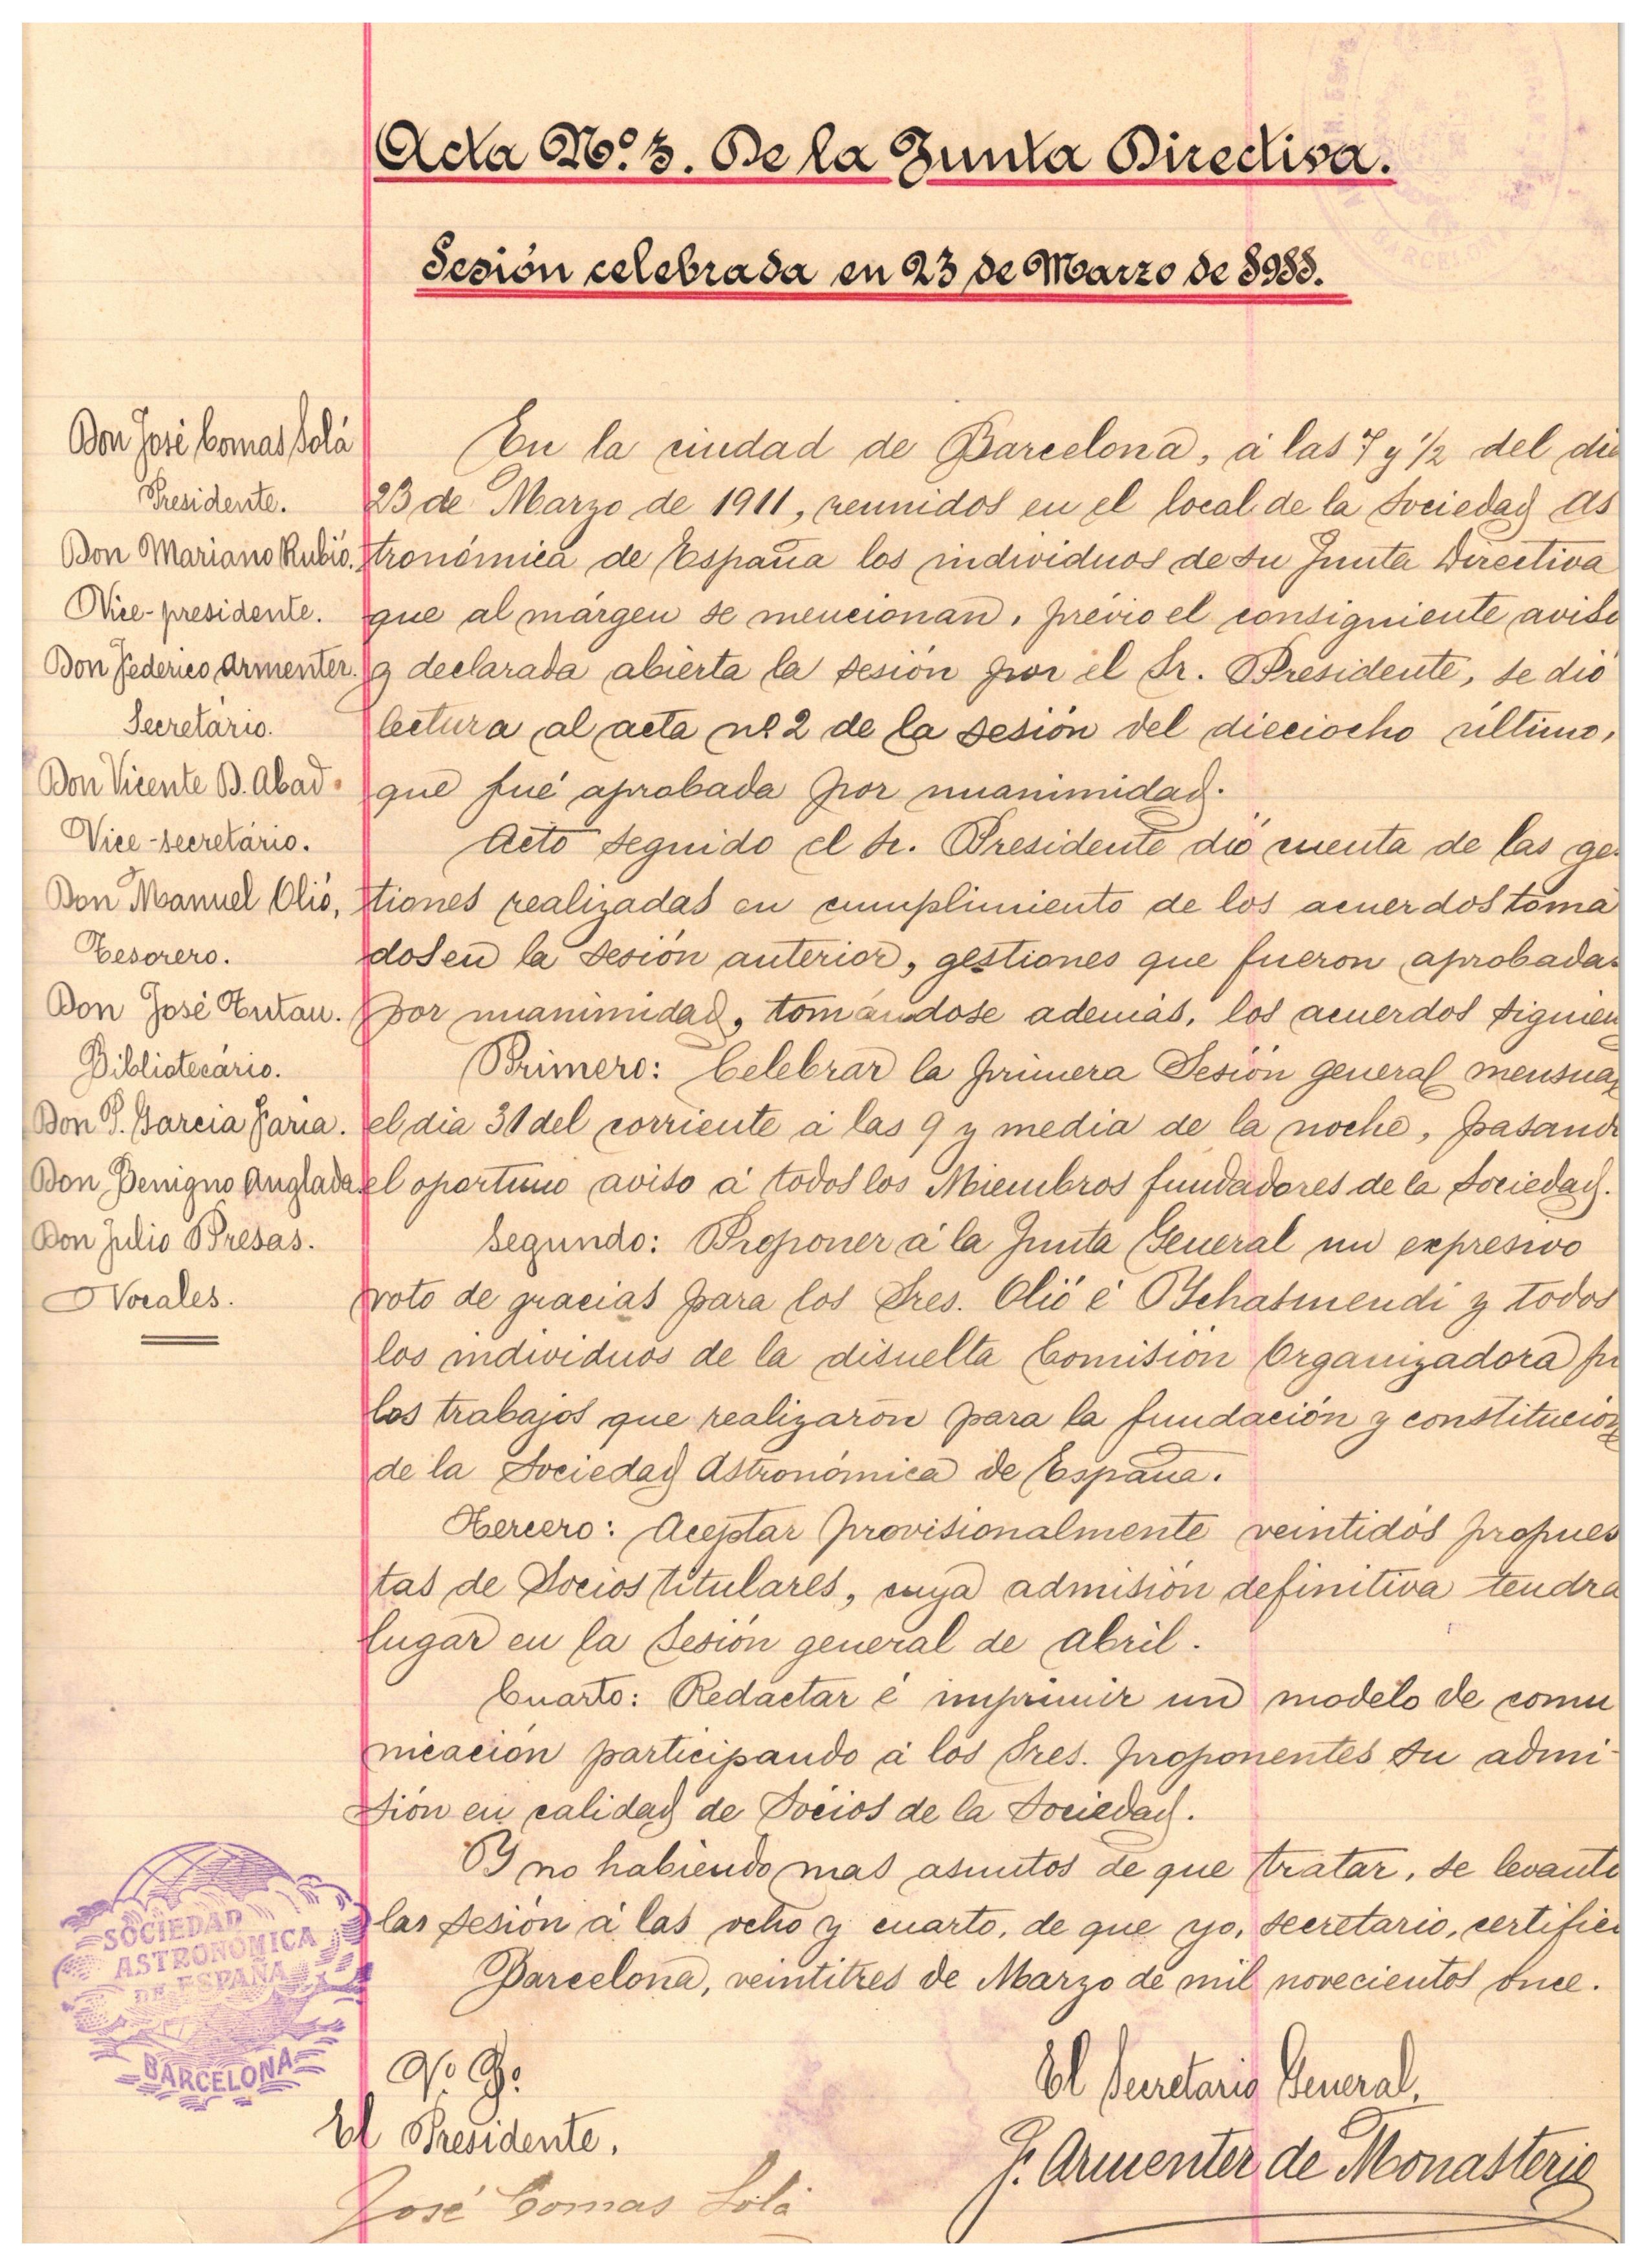 Acta Nº. 3. De la Junta Directiva.
Sesión celebrada en 23 de Marzo de 1911.
Don José Comas Solá
Presidente.
Don Mariano Rubió.
Vice-presidente.
Don Federico Armenter.
Secretário.
Don Vicente D. Abad.
Vice-secretário.
Don Manuel Olió,
Tesorero.
Don José Tutau.
Bibliotecário.
Don P. Garcia Faria.
Don Benigno Anglada.
Don Julio Presas.
Vocales.
En la ciudad de Barcelona, á las 7 y 1/2 del dia
23 de Marzo de 1911, reunidos en el local de la Sociedad As
tronómica de España los individuos de su Junta Directiva
que al márgen se mencionan, prévio el consiguiente aviso
y declarada abierta la sesión por el Sr. Presidente, se dió
lectura al acta nº 2 de la sesión del dieciocho último,
que fué aprobada por unanimidad.
Acto seguido el Sr. Presidente dió cuenta de las ges
tiones realizadas en cumplimiento de los acuerdos toma
dos en la sesión anterior, gestiones que fueron aprobadas
por unanimidad, tomándose además, los acuerdos siguien
Primero: Celebrar la primera Sesión general mensual
el dia 31 del corriente á las 9 y media de la noche, pasando
el oportuno aviso á todos los Miembros fundadores de la Sociedad.
Segundo: Proponer á la Junta General un expresivo
voto de gracias para los Sres. Olió é Ychasmendi y todos
los individuos de la disuelta Comisión Organizadora por
los trabajos que realizaron para la fundación y constitución
de la Sociedad Astronómica de España.
Tercero: Aceptar provisionalmente veintidós propues
tas de Socios titulares, cuya admisión definitiva tendrá
lugar en la Sesión general de abril.
Cuarto: Redactar é imprimir un modelo de comu
nicación participando á los Sres. proponentes su admi-
sión en calidad de Socios de la Sociedad.
Y no habiendo mas asuntos de que tratar, se levantó
las sesión á las ocho y cuarto, de que yo, secretario, certifico
Barcelona, veintitres de Marzo de mil novecientos once.
SOCIEDAD
ASTRONÓMICA
DE ESPAÑA
BARCELONA
Vº. Bº.
El Presidente,
José Comas Solá
El Secretario General,
F. Armenter de Monasterio